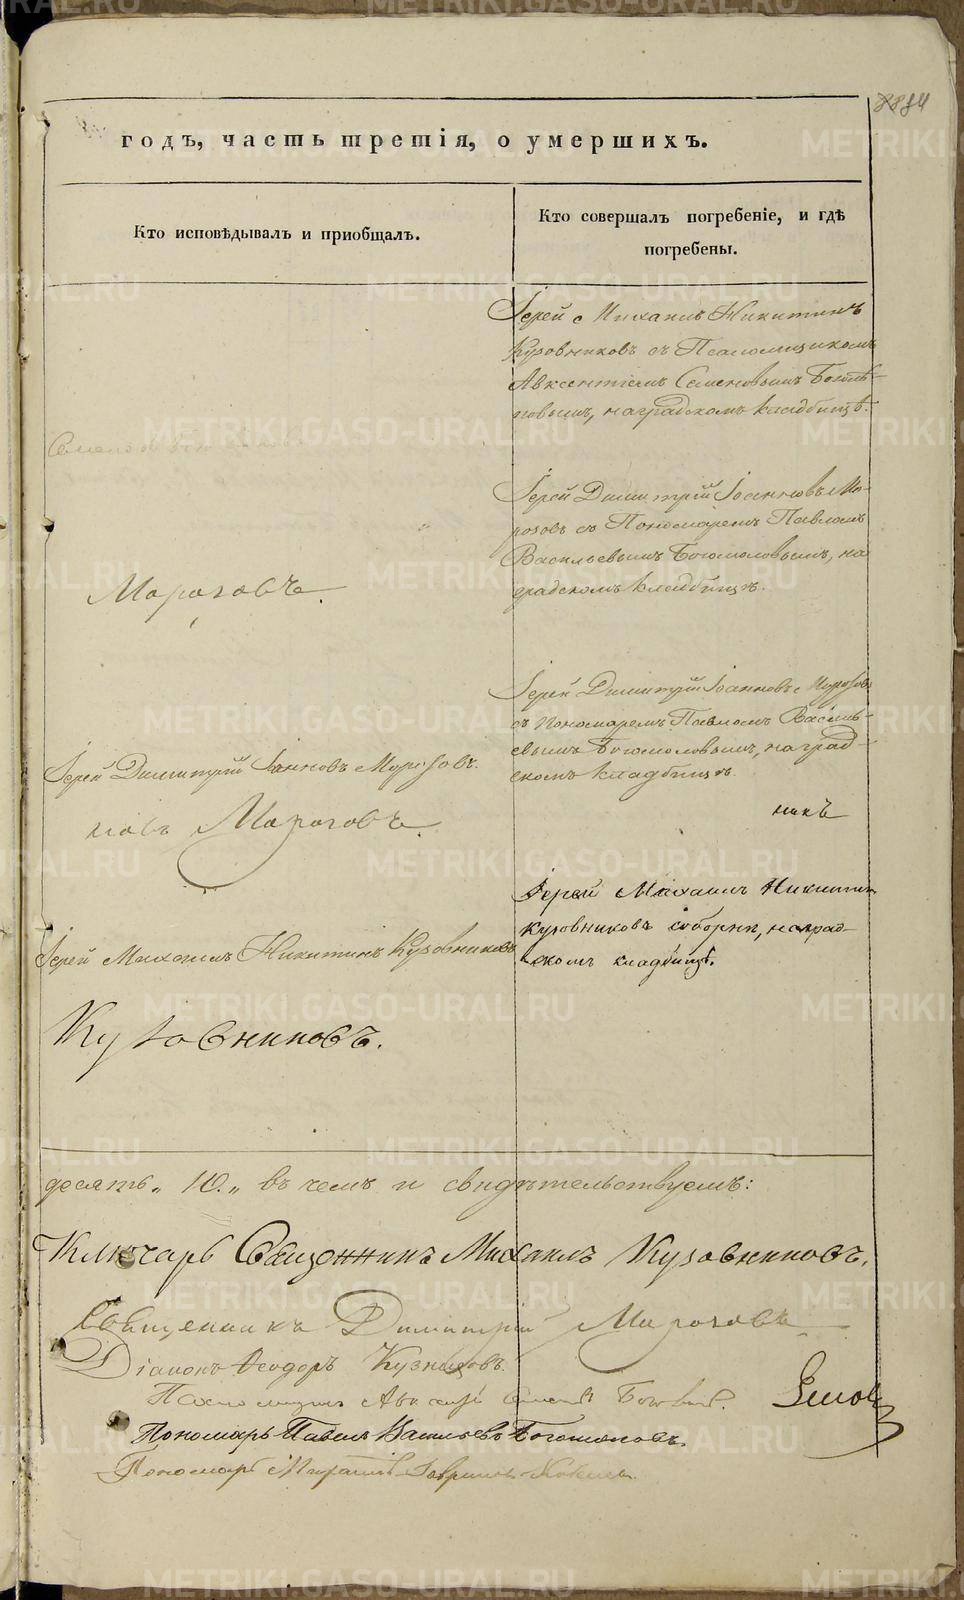 годъ, часть третія, о умершихъ.
Кто исповѣдывалъ и приобщалъ.
Кто совершалъ погребеніе, и гдѣ
погребены.
Іерей Михаилъ Никитинъ
Кузовниковъ съ Псаломщикомъ
Авксентіемъ Семеновымъ
на градскомъ кладбищѣ.
Іерей Димитрій Іоанновъ Мо-
розовъ съ Пономаремъ Павломъ
Васильевымъ Богомоловымъ, на
градскомъ кладбищѣ.
Морозовъ.
Іерей Димитрій Іоанновъ Морозовъ
съ Пономаремъ Павломъ Василь-
евымъ Богомоловымъ, на град-
скомъ кладбищѣ.
Іерей Димитрій Іанновъ Морозовъ.
новъ Морозовъ.
никъ
Іерей Михаилъ Никитинъ
Кузовниковъ соборнѣ, на град-
скомъ кладбищѣ.
Іерей Михаилъ Никитинъ Кузовниковъ
Кузовниковъ.
десять „10.„ въ чемъ и свидѣтельствуемъ:
Ключарь Священникъ Михаилъ Кузовниковъ.
Священникъ Димитрій Морозовъ
Діаконъ Ѳеодоръ Кузнецовъ.
Пономарь Павелъ Васильевъ Богомоловъ.
Пономарь
METRIKI.GASO-URAL.RU